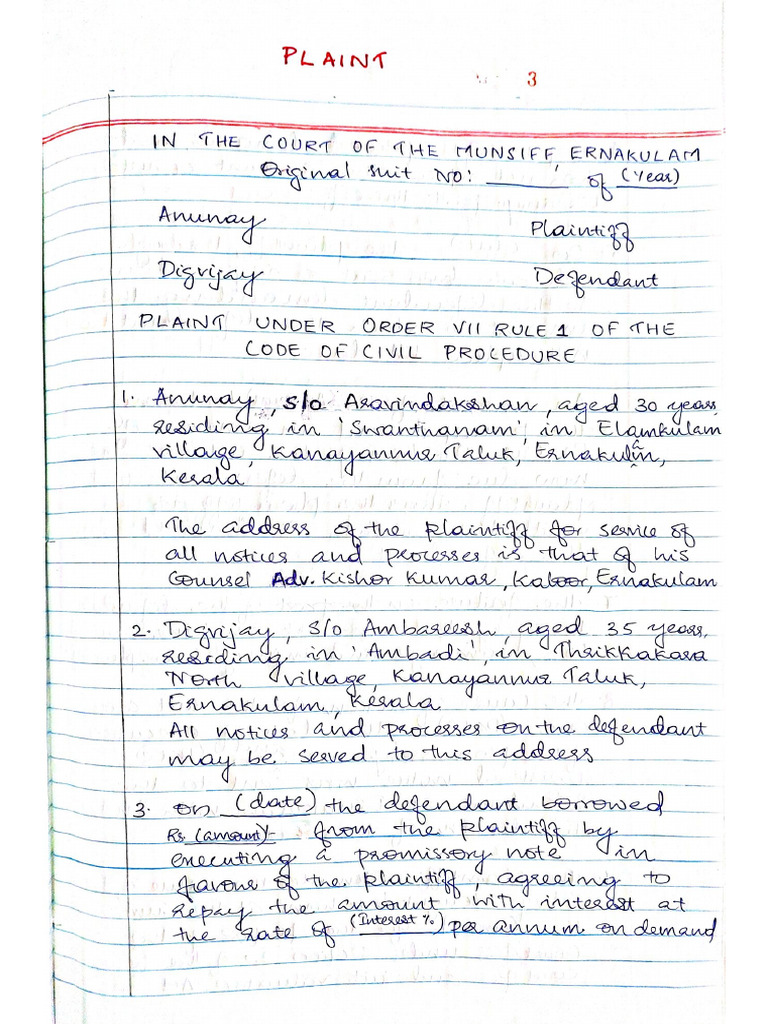 PLAINT
3
IN THE COURT OF THE MUNSIFF, ERNAKULAM
Original suit NO: ______ of (Year)
Anunay Plaintiff
Digvijay Defendant
PLAINT UNDER ORDER VII RULE 1 OF THE
CODE OF CIVIL PROCEDURE
1. Anunay, S/o Aravindakshan, aged 30 years,
residing in 'Swanthanam', in Elamkulam
village, Kanayannur Taluk, Ernakulam,
Kerala
The address of the plaintiff for service of
all notices and processes is that of his
Counsel Adv. Kishor Kumar, Kaloor, Ernakulam
2. Digvijay, S/o Ambareesh, aged 35 years,
residing in 'Ambadi', in Thrikkakara
North village, Kanayannur Taluk,
Ernakulam, Kerala
All notices and processes on the defendant
may be served to this address
3. on (date) the defendant borrowed
Rs (amount)- from the plaintiff by
executing a promissory note in
favour of the plaintiff, agreeing to
repay the amount with interest at
the rate of (Interest %) per annum on demand